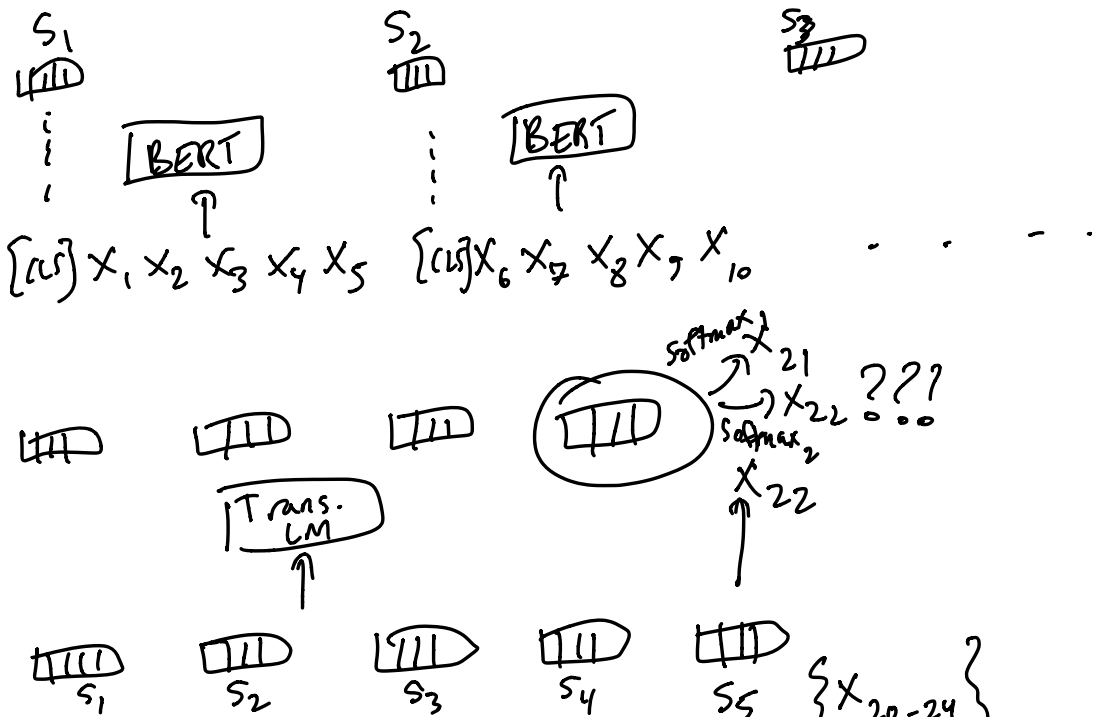 S1 S2 S3
BERT BERT
[CLS] X1 X2 X3 X4 X5 [CLS] X6 X7 X8 X9 X10
softmax1 X21
X22 ???
softmax2
X22
Trans.
LM
S1 S2 S3 S4 S5 {X20-24}